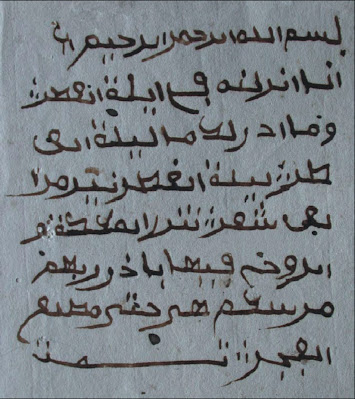 بسم الله الرحمن الرحيم
انا انزلنه في ليلة القدر
وما ادرىك ما ليلة الق
در ليلة القدر خير من ا
لف شهر تنزل الملئكة و
الروح فيها باذن ربهم
مر سلم هي حتى مطلع
الفجر تمت